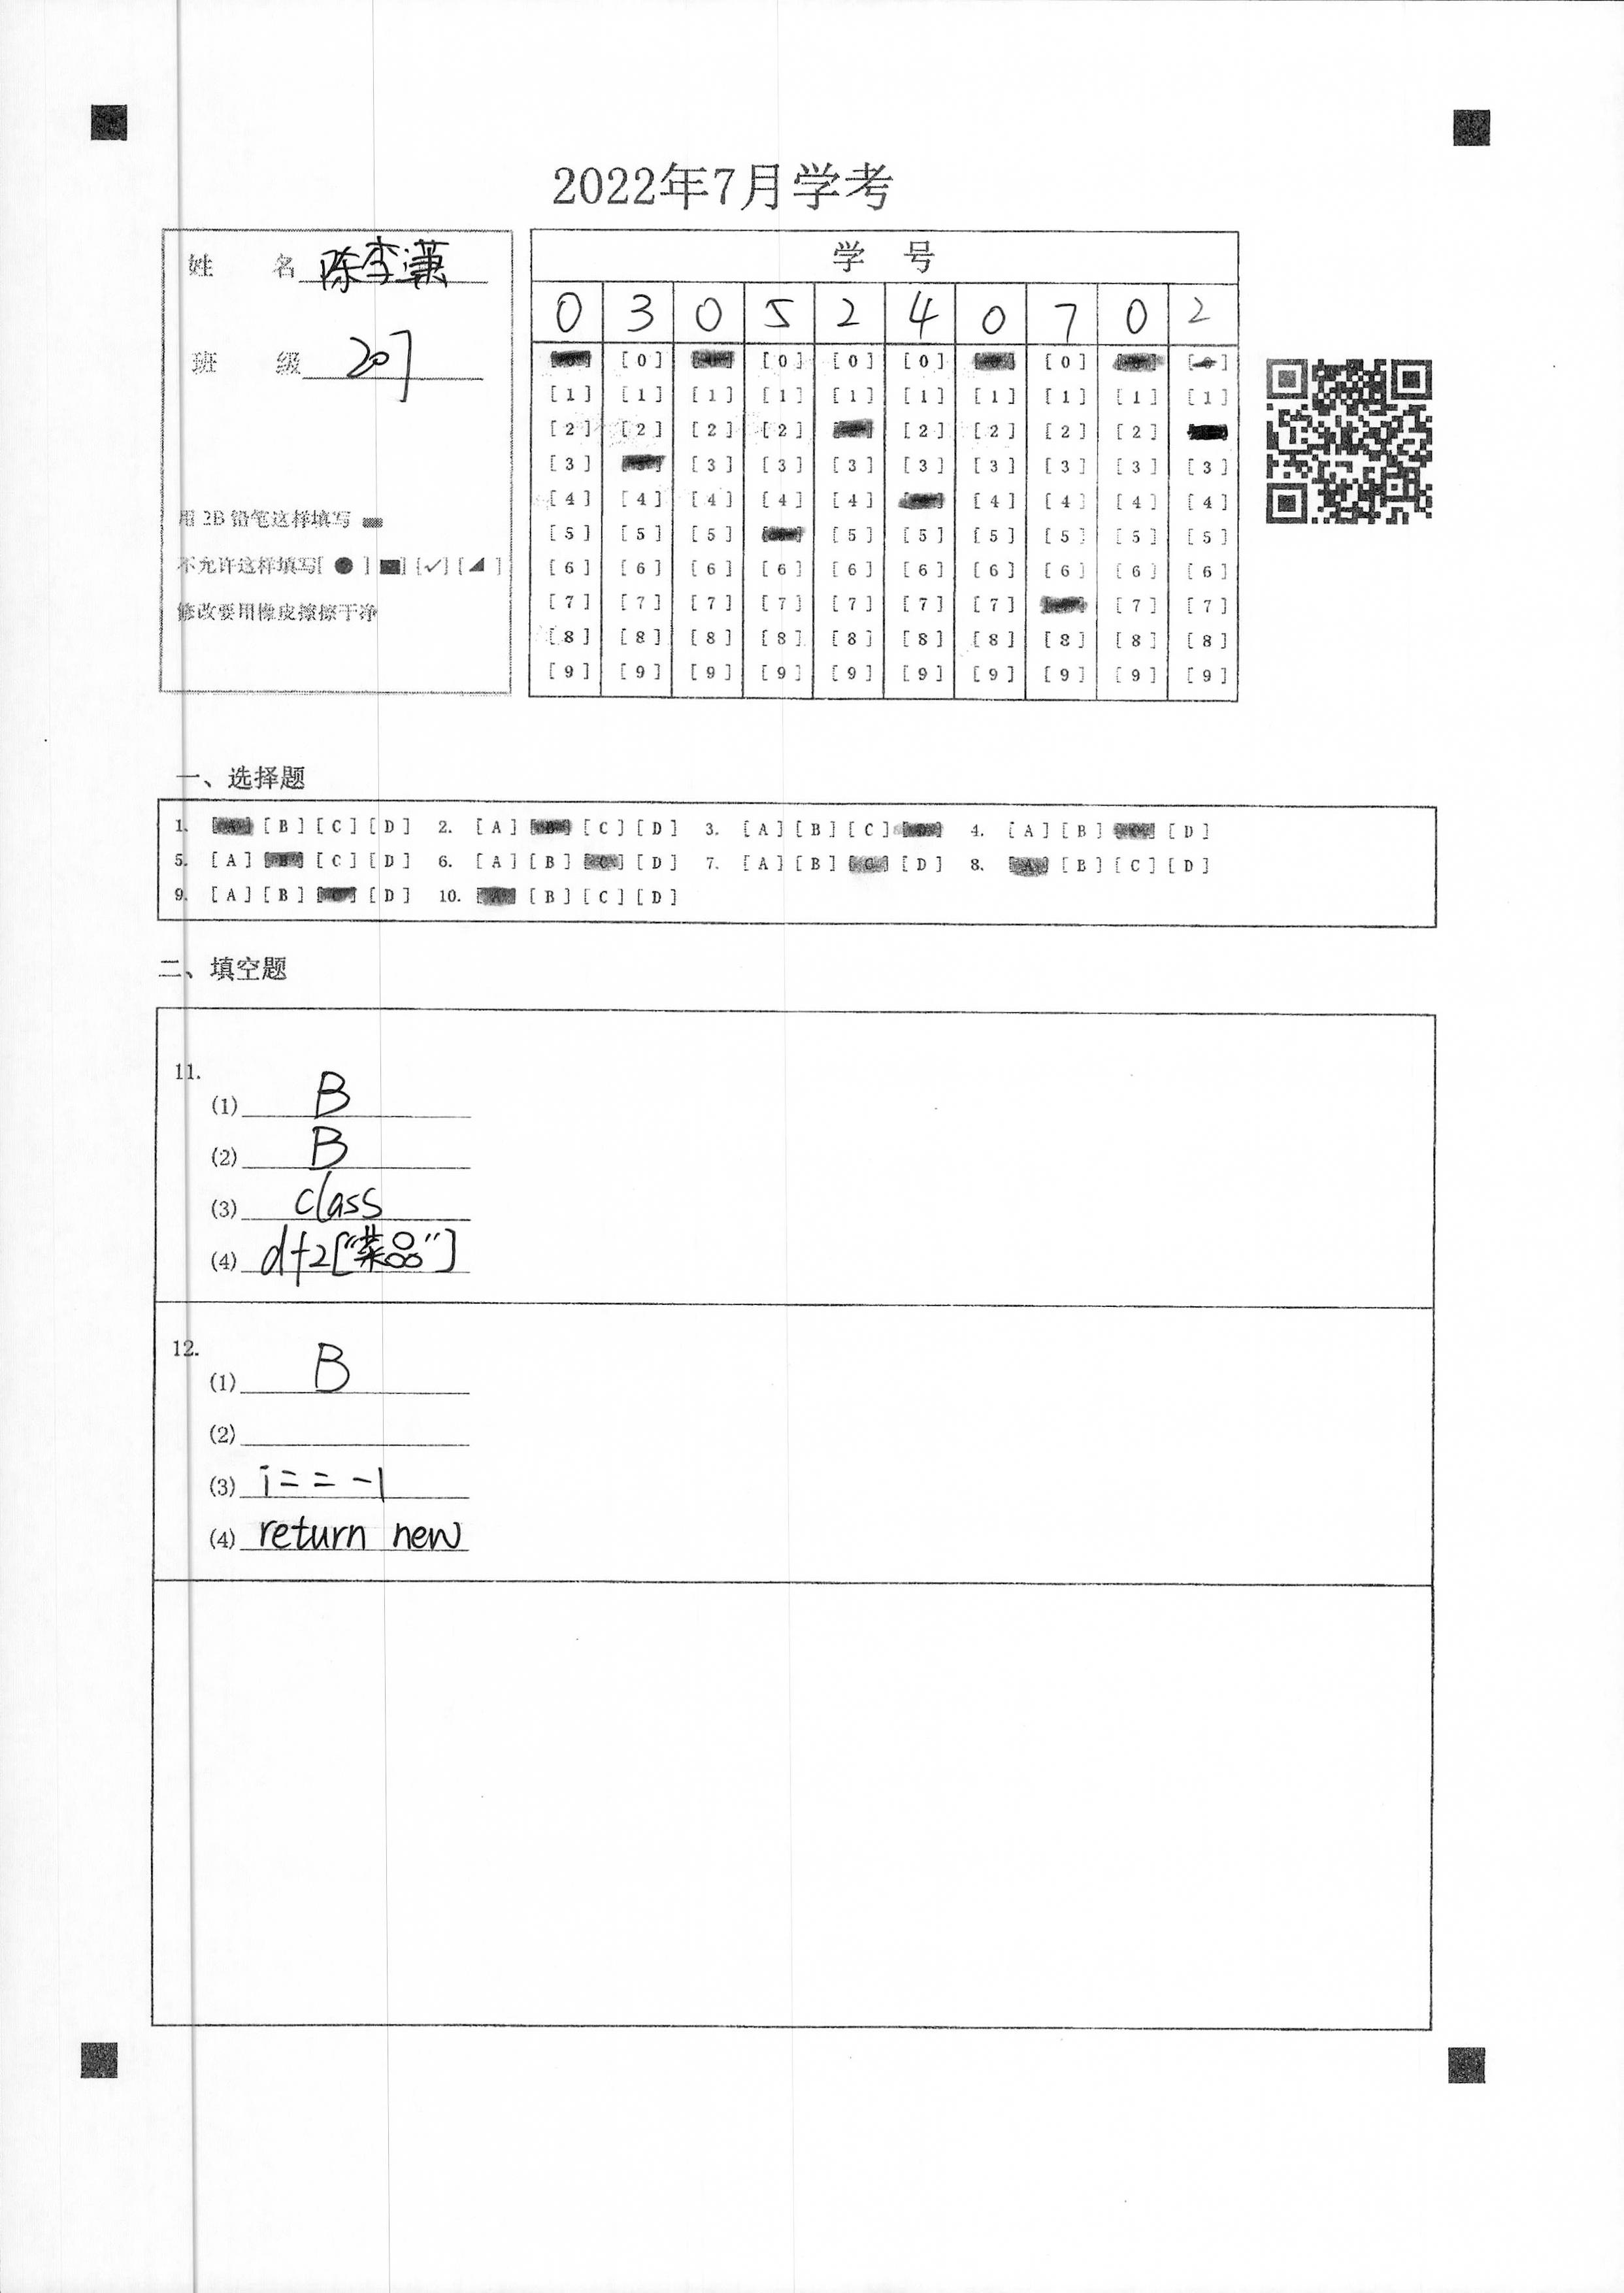 2022年7月学考
姓 名 陈李潇
班 级 207
用 2B 铅笔这样填写
不允许这样填写[ ● ] [■] [✓] [◢ ]
修改要用橡皮擦擦干净
学 号
0 3 0 5 2 4 0 7 0 2
[0] [0] [0] [0] [0]
[1] [1] [1] [1] [1] [1] [1] [1] [1] [1]
[2] [2] [2] [2] [2] [2] [2] [2]
[3] [3] [3] [3] [3] [3] [3] [3] [3]
[4] [4] [4] [4] [4] [4] [4] [4] [4]
[5] [5] [5] [5] [5] [5] [5] [5] [5]
[6] [6] [6] [6] [6] [6] [6] [6] [6] [6]
[7] [7] [7] [7] [7] [7] [7] [7] [7]
[8] [8] [8] [8] [8] [8] [8] [8] [8] [8]
[9] [9] [9] [9] [9] [9] [9] [9] [9] [9]
一、选择题
1. [A] [B] [C] [D] 2. [A] [B] [C] [D] 3. [A] [B] [C] [D] 4. [A] [B] [C] [D]
5. [A] [B] [C] [D] 6. [A] [B] [C] [D] 7. [A] [B] [C] [D] 8. [A] [B] [C] [D]
9. [A] [B] [C] [D] 10. [A] [B] [C] [D]
二、填空题
11.
(1) B
(2) B
(3) class
(4) df2["菜品"]
12.
(1) B
(2)
(3) i==-1
(4) return new